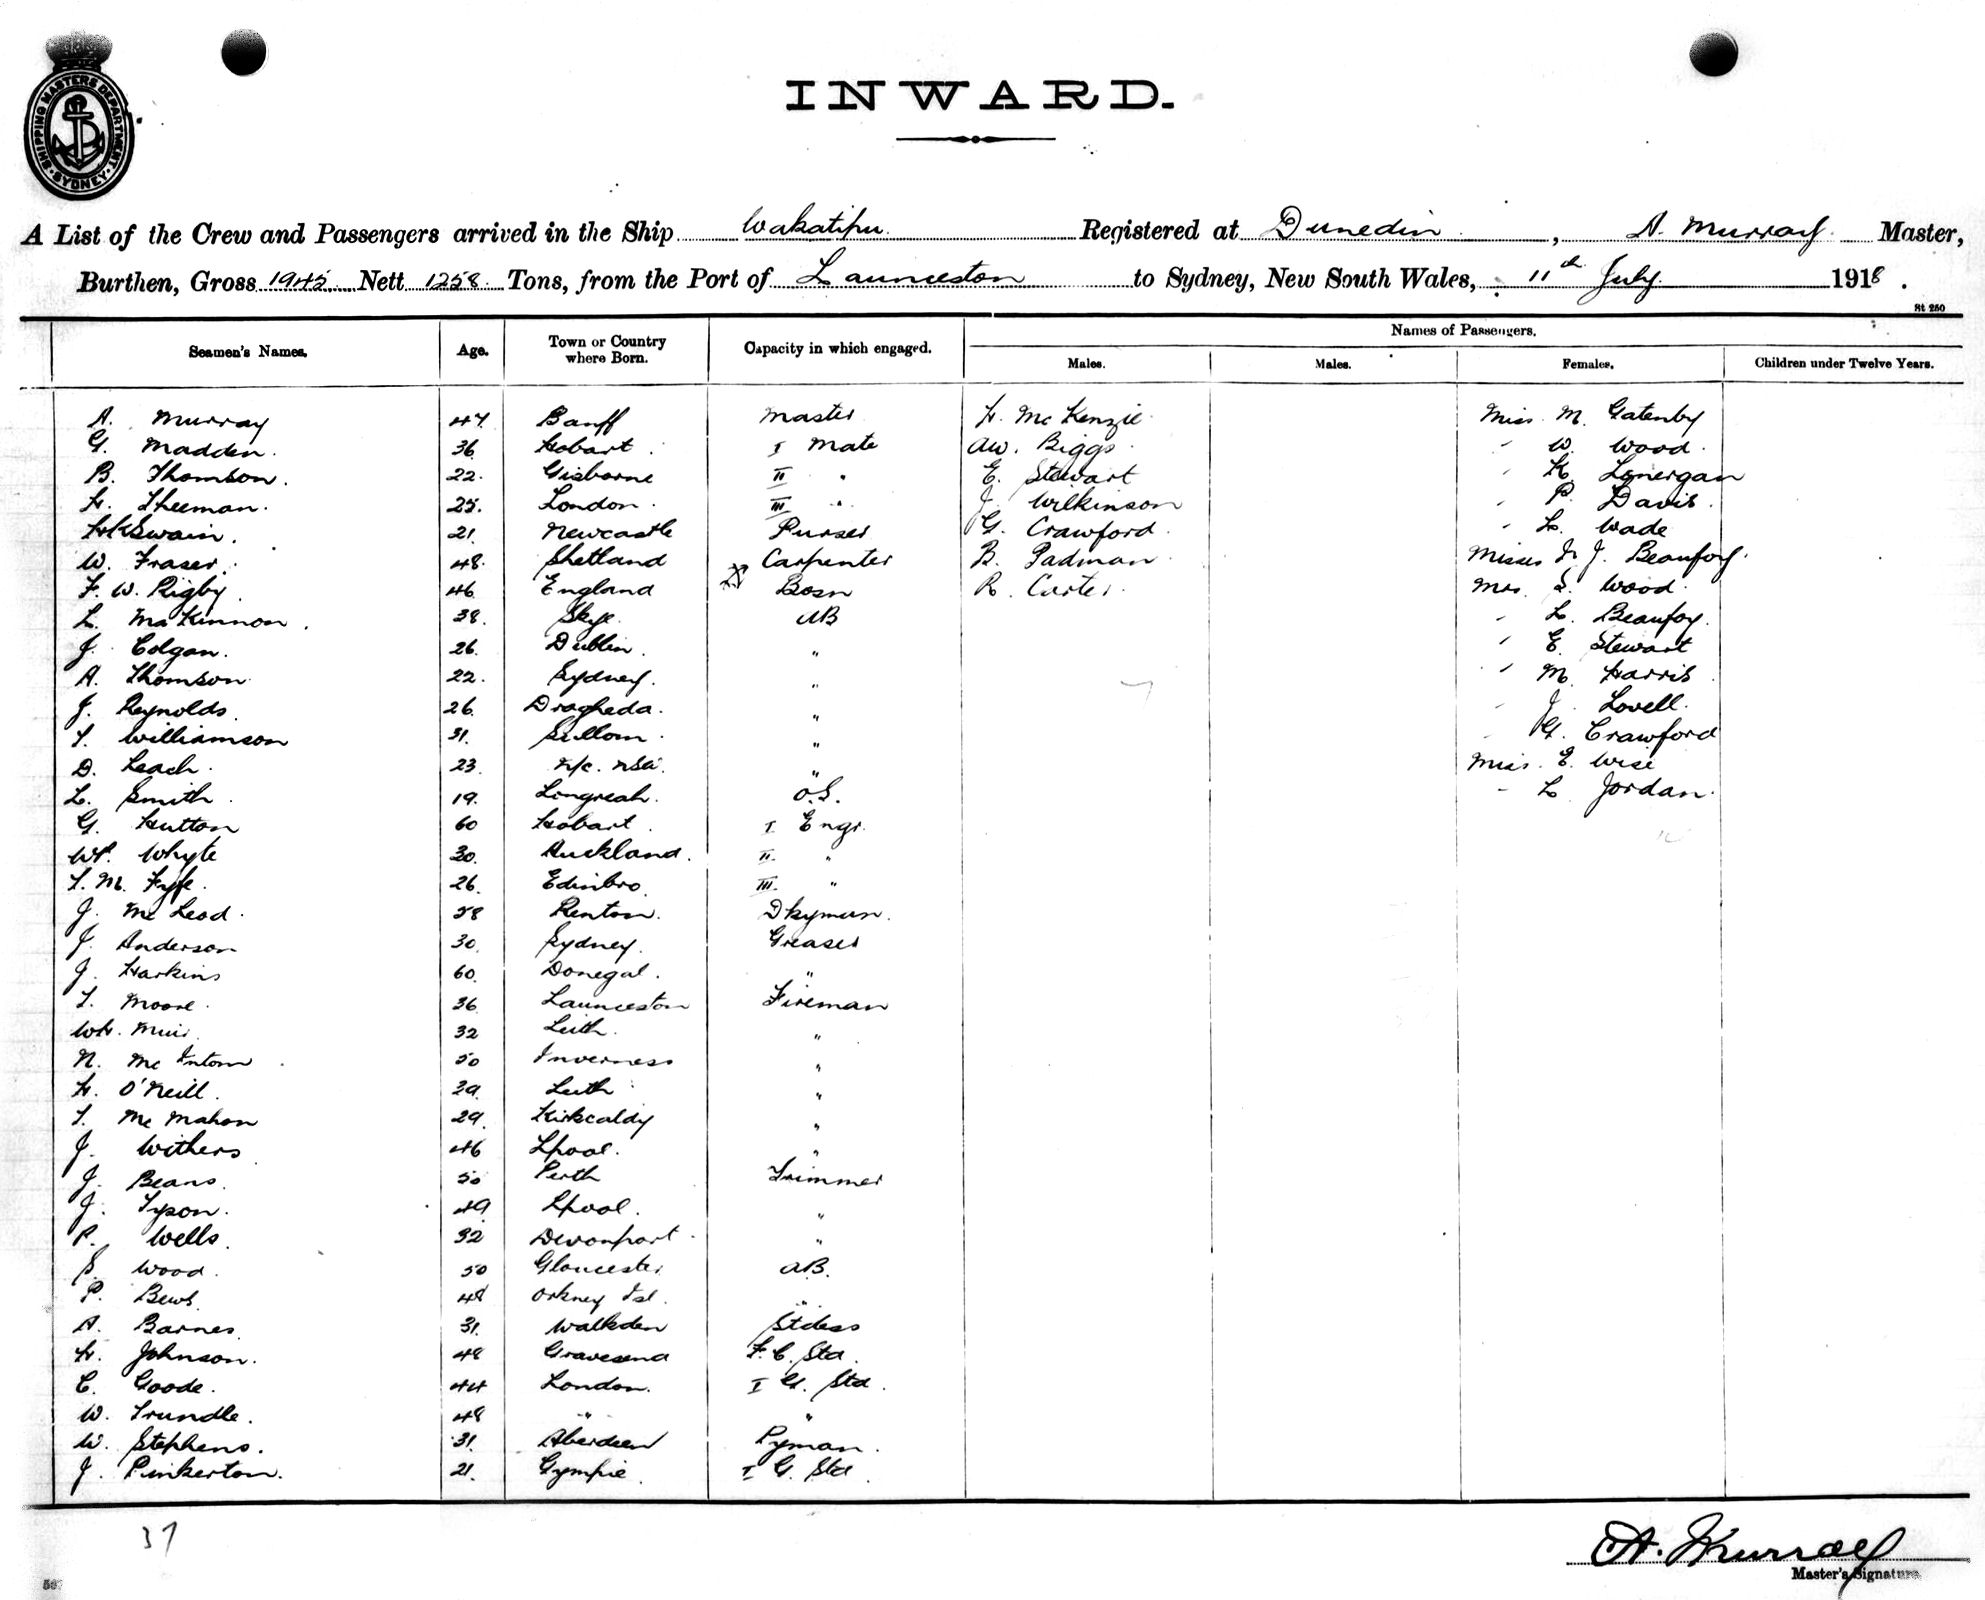 SHIPPING MASTERS DEPARTMENT · SYDNEY ·
INWARD.
A List of the Crew and Passengers arrived in the Ship Wakatipu Registered at Dunedin, A. Murray Master,
Burthen, Gross 1945 Nett 1258 Tons, from the Port of Launceston to Sydney, New South Wales, 11th July 1918.
St 250
Names of Passengers.
Seamen's Names. Age. Town or Country where Born. Capacity in which engaged. Males. Males. Females. Children under Twelve Years.
A. Murray 47 Banff Master H. McKenzie Miss M. Gatenby
G. Madden 36 Hobart I Mate AW. Biggs " W. Wood
B. Thomson 22 Gisborne II " E. Stewart " K. Lonergan
H. Theeman 25 London III " J. Wilkinson " P. Davis
HKSwain 21 Newcastle Purser G. Crawford " L. Wade
W. Fraser 48 Shetland Carpenter B. Padman Misses J. Beaufoy
F. W. Rigby 46 England Bosn R. Carter Mrs. S. Wood
L. MaKinnon 38 Skye AB " L. Beaufoy
J. Colgan 26 Dublin " " E. Stewart
A. Thomson 22 Sydney " " M. Harris
J. Reynolds 26 Drogheda " " J. Lovell
T. Williamson 31 Sullom " " G. Crawford
D. Leach 23 N/c. NSW " Miss E. Wise
L. Smith 19 Longreah O.S. " L. Jordan
G. Hutton 60 Hobart I Engr.
WP. Whyte 30 Auckland II "
T. M. Fyfe 26 Edinbro III "
J. McLeod 58 Renton Dkyman
J. Anderson 30 Sydney Greaser
J. Harkins 60 Donegal "
T. Moore 36 Launceston Fireman
WH. Muir 32 Leith "
N. McIntom 50 Inverness "
H. O'Neill 39 Leith "
T. McMahon 29 Kirkcaldy "
J. Withers 46 Lpool "
J. Beans 50 Perth Trimmer
J. Tyson 49 Lpool "
P. Wells 32 Devonport "
S. Wood 50 Gloucester AB.
P. Bews 48 Orkney Isl. "
A. Barnes 31 Walkden Stdess
H. Johnson 48 Gravesend F.C. Std
C. Goode 44 London I G. Std
W. Trundle 48 " "
W. Stephens 31 Aberdeen Pyman
J. Pinkerton 21 Gympie I G. Std
37
A. Murray
Master's Signature